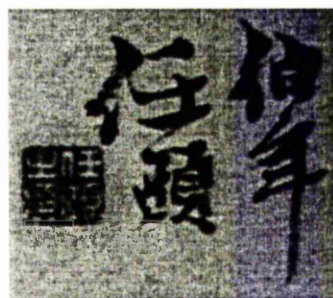 伯年
任頤